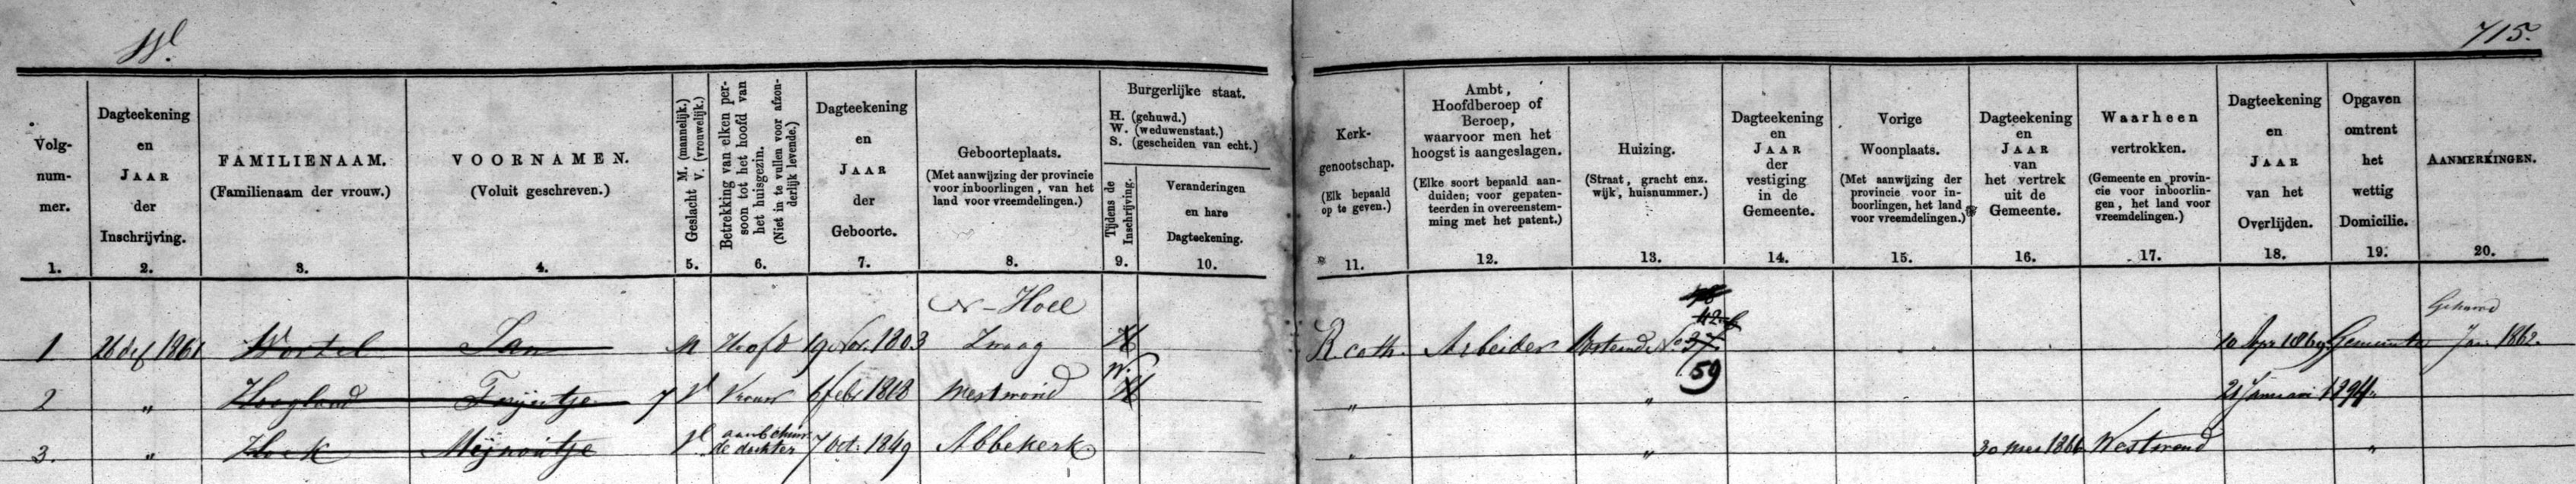 W. 715.
Volg-
num-
mer.
1.
Dagteekening
en
JAAR
der
Inschrijving.
2.
FAMILIENAAM.
(Familienaam der vrouw.)
3.
VOORNAMEN.
(Voluit geschreven.)
4.
Geslacht M. (mannelijk.)
V. (vrouwelijk.)
5.
Betrekking van elken per-
soon tot het hoofd van
het huisgezin.
(Niet in te vullen voor afzon-
derlijk levende.)
6.
Dagteekening
en
JAAR
der
Geboorte.
7.
Geboorteplaats.
(Met aanwijzing der provincie
voor inboorlingen, van het
land voor vreemdelingen.)
8.
Burgerlijke staat.
H. (gehuwd.)
W. (weduwenstaat.)
S. (gescheiden van echt.)
Tijdens de
Inschrijving.
9.
Veranderingen
en hare
Dagteekening.
10.
Kerk-
genootschap.
(Elk bepaald
op te geven.)
11.
Ambt,
Hoofdberoep of
Beroep,
waarvoor men het
hoogst is aangeslagen.
(Elke soort bepaald aan-
duiden; voor gepaten-
teerden in overeenstem-
ming met het patent.)
12.
Huizing.
(Straat, gracht enz.
wijk, huisnummer.)
13.
Dagteekening
en
JAAR
der
vestiging
in de
Gemeente.
14.
Vorige
Woonplaats.
(Met aanwijzing der
provincie voor in-
boorlingen, het land
voor vreemdelingen.)
15.
Dagteekening
en
JAAR
van
het vertrek
uit de
Gemeente.
16.
Waarheen
vertrokken.
(Gemeente en provin-
cie voor inboorlin-
gen, het land voor
vreemdelingen.)
17.
Dagteekening
en
JAAR
van het
Overlijden.
18.
Opgaven
omtrent
het
wettig
Domicilie.
19.
AANMERKINGEN.
20.
N-Holl
42
1 26 dec 1861 Wortel Jan M Hoofd 19 Nov. 1803 Zwaag H R. cath. Arbeider Oosteinde No 37 10 Apr 1869 Gemeente Jan 1862.
W. 59
2 " Hoogland Trijntje V Vrouw 6 Febr 1818 Westwoud H " " 21 Januari 1894 "
3. " Hoek Meijnoutje V. aanbehuw
de dochter 7 Oct. 1849 Abbekerk " " 30 Mei 1866 Westwoud "